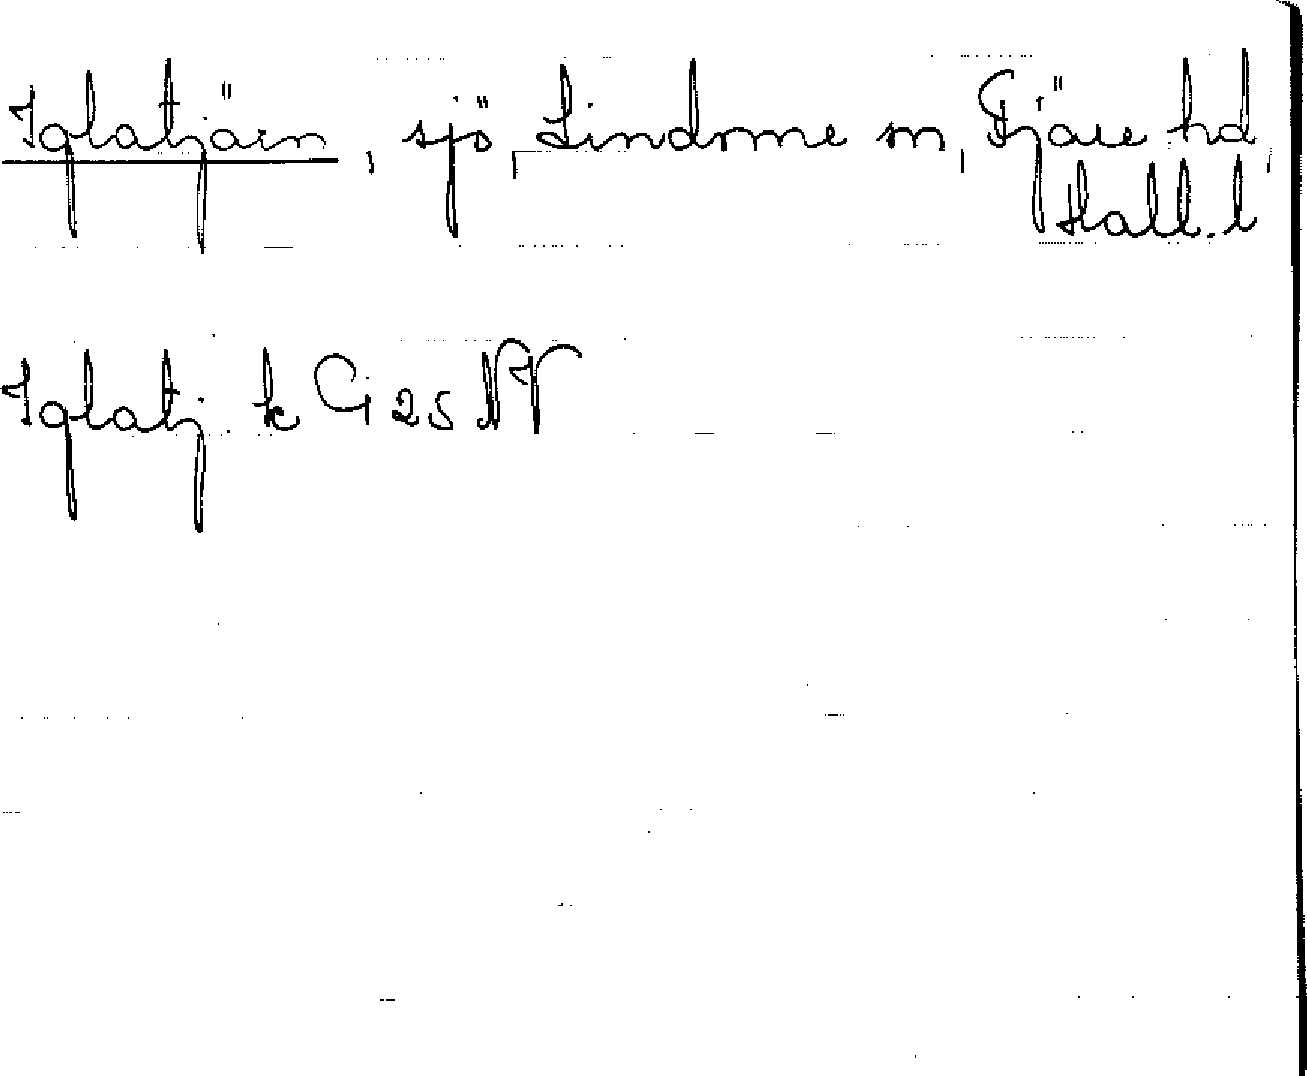 Iglatjärn, sjö, Lindome sn, Fjäre hd,
Hall. l
Iglatj. k G i 25 NV